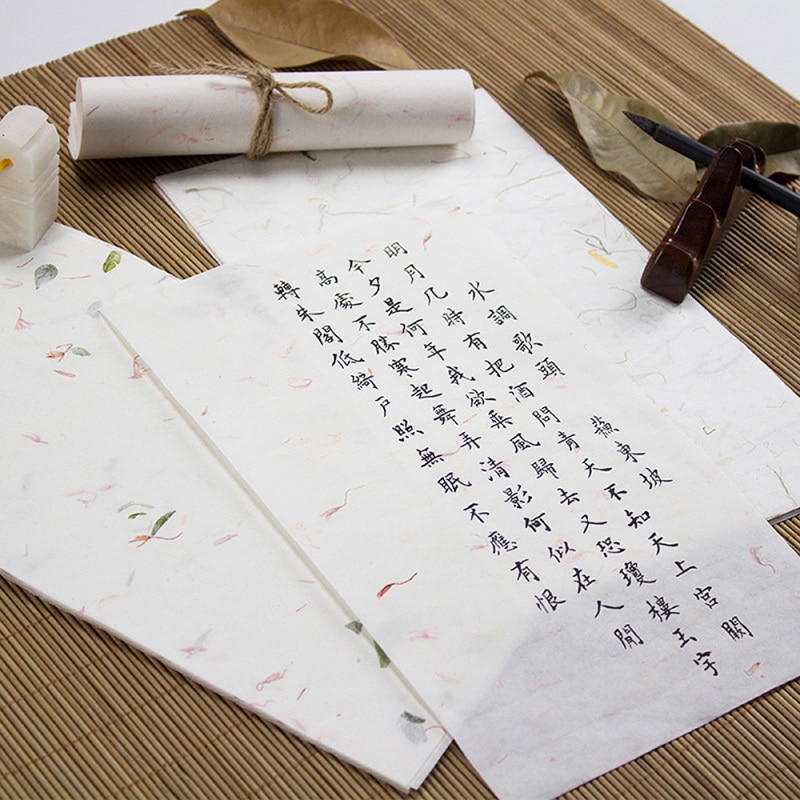 水調歌頭 蘇東坡
明月几時有把酒問青天不知天上宮闕
今夕是何年我欲乘風歸去又恐瓊樓玉宇
高處不勝寒起舞弄清影何似在人間
轉朱閣低綺戶照無眠不應有恨